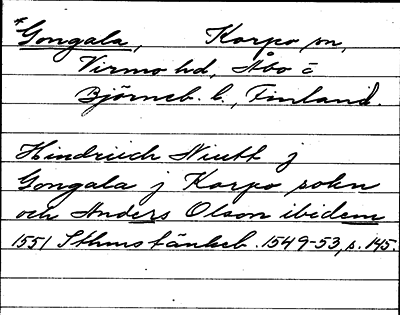 *Gongala, Korpo sn,
Virmo hd, Åbo o
Björneb. l., Finland.
Hindrich Niutt j
Gongala j Korpo sokn
och Anders Olson ibidem
1551 Sthms tänkeb. 1549-53, s. 145.